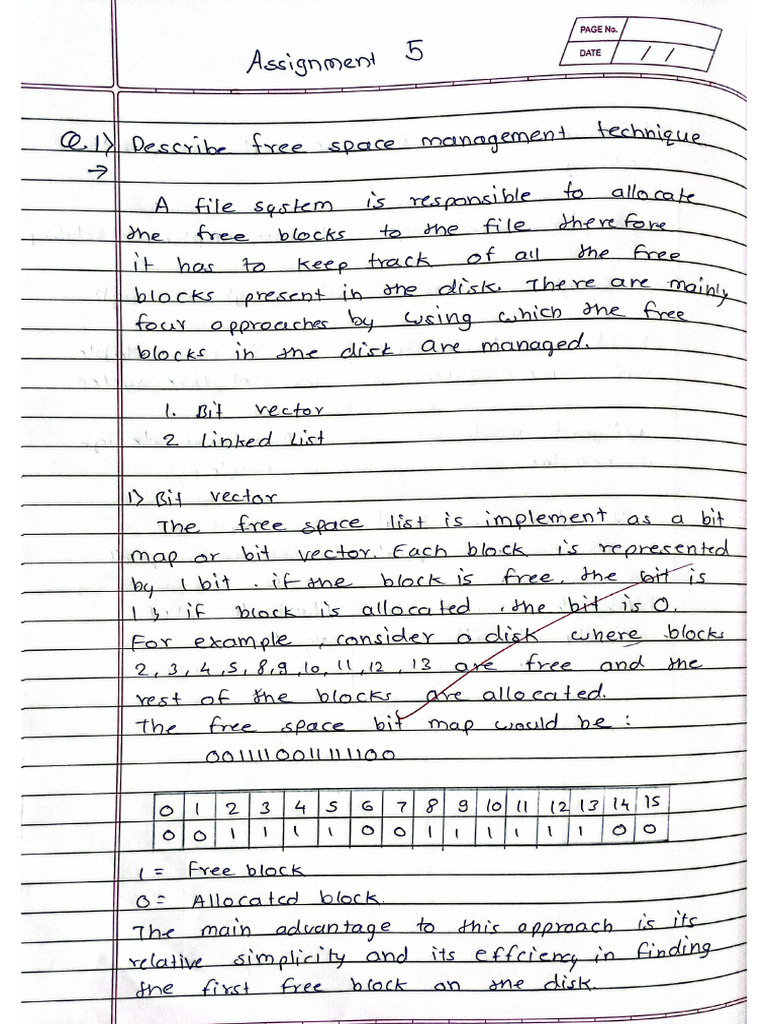 PAGE No.
DATE / /
Assignment 5
Q.1) Describe free space management technique
→
A file system is responsible to allocate
the free blocks to the file therefore
it has to keep track of all the free
blocks present in the disk. There are mainly
four approaches by using which the free
blocks in the disk are managed.
1. Bit vector
2 Linked List
1) Bit vector
The free space list is implement as a bit
map or bit vector. Each block is represented
by 1 bit. if the block is free, the bit is
1; if block is allocated, the bit is 0.
For example, consider a disk where blocks
2, 3, 4, 5, 8, 9, 10, 11, 12, 13 are free and the
rest of the blocks are allocated.
The free space bit map would be:
0011110011111100
0 1 2 3 4 5 6 7 8 9 10 11 12 13 14 15
0 0 1 1 1 1 0 0 1 1 1 1 1 1 0 0
1 = Free block
0 = Allocated block.
The main advantage to this approach is its
relative simplicity and its effciency in finding
the first free block on the disk.